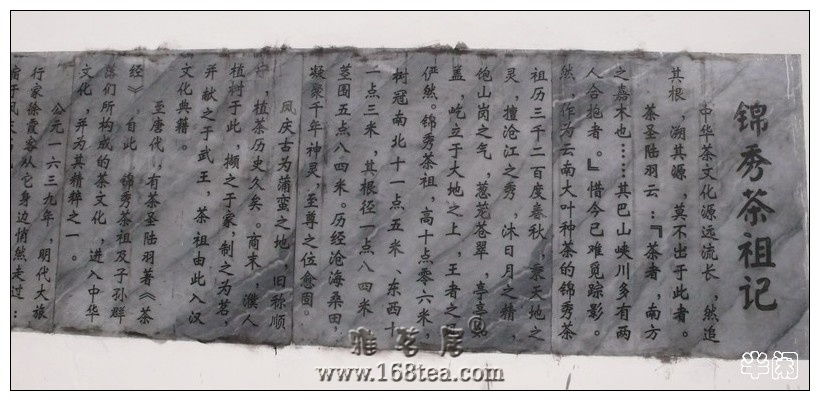 锦秀茶祖记
中华茶文化源远流长，然追
其根，溯其源，莫不出于此者。
茶圣陆羽云：『茶者，南方
之嘉木也……其巴山峡川多有两
人合抱者。』惜今已难觅踪影。
然，作为云南大叶种茶的锦秀茶
祖历三千二百度春秋，禀天地之
灵，揽沧江之秀，沐日月之精，
饱山岗之气，葱茏苍翠，亭亭如
盖，屹立于大地之上，王者之
俨然。锦秀茶祖，高十点零六米，
树冠南北十一点五米、东西十
一点三米，其根径一点八四米
茎围五点八四米。历经沧海桑田，
凝聚千年神灵，至尊之位愈固。
凤庆古为蒲蛮之地，旧称顺
宁，植茶历史久矣。商末，濮人
植树于此，撷之于家，制之为茗，
并献之于武王，茶祖由此入汉
文化典籍。
至唐代，有茶圣陆羽著《茶
经》，自此，锦秀茶祖及子孙群
落们所构成的茶文化，进入中华
文化，并为其精粹之一。
公元一六三九年，明代大旅
行家徐霞客从它身边悄然走过；
雅茗居®
www.168tea.com
半闲